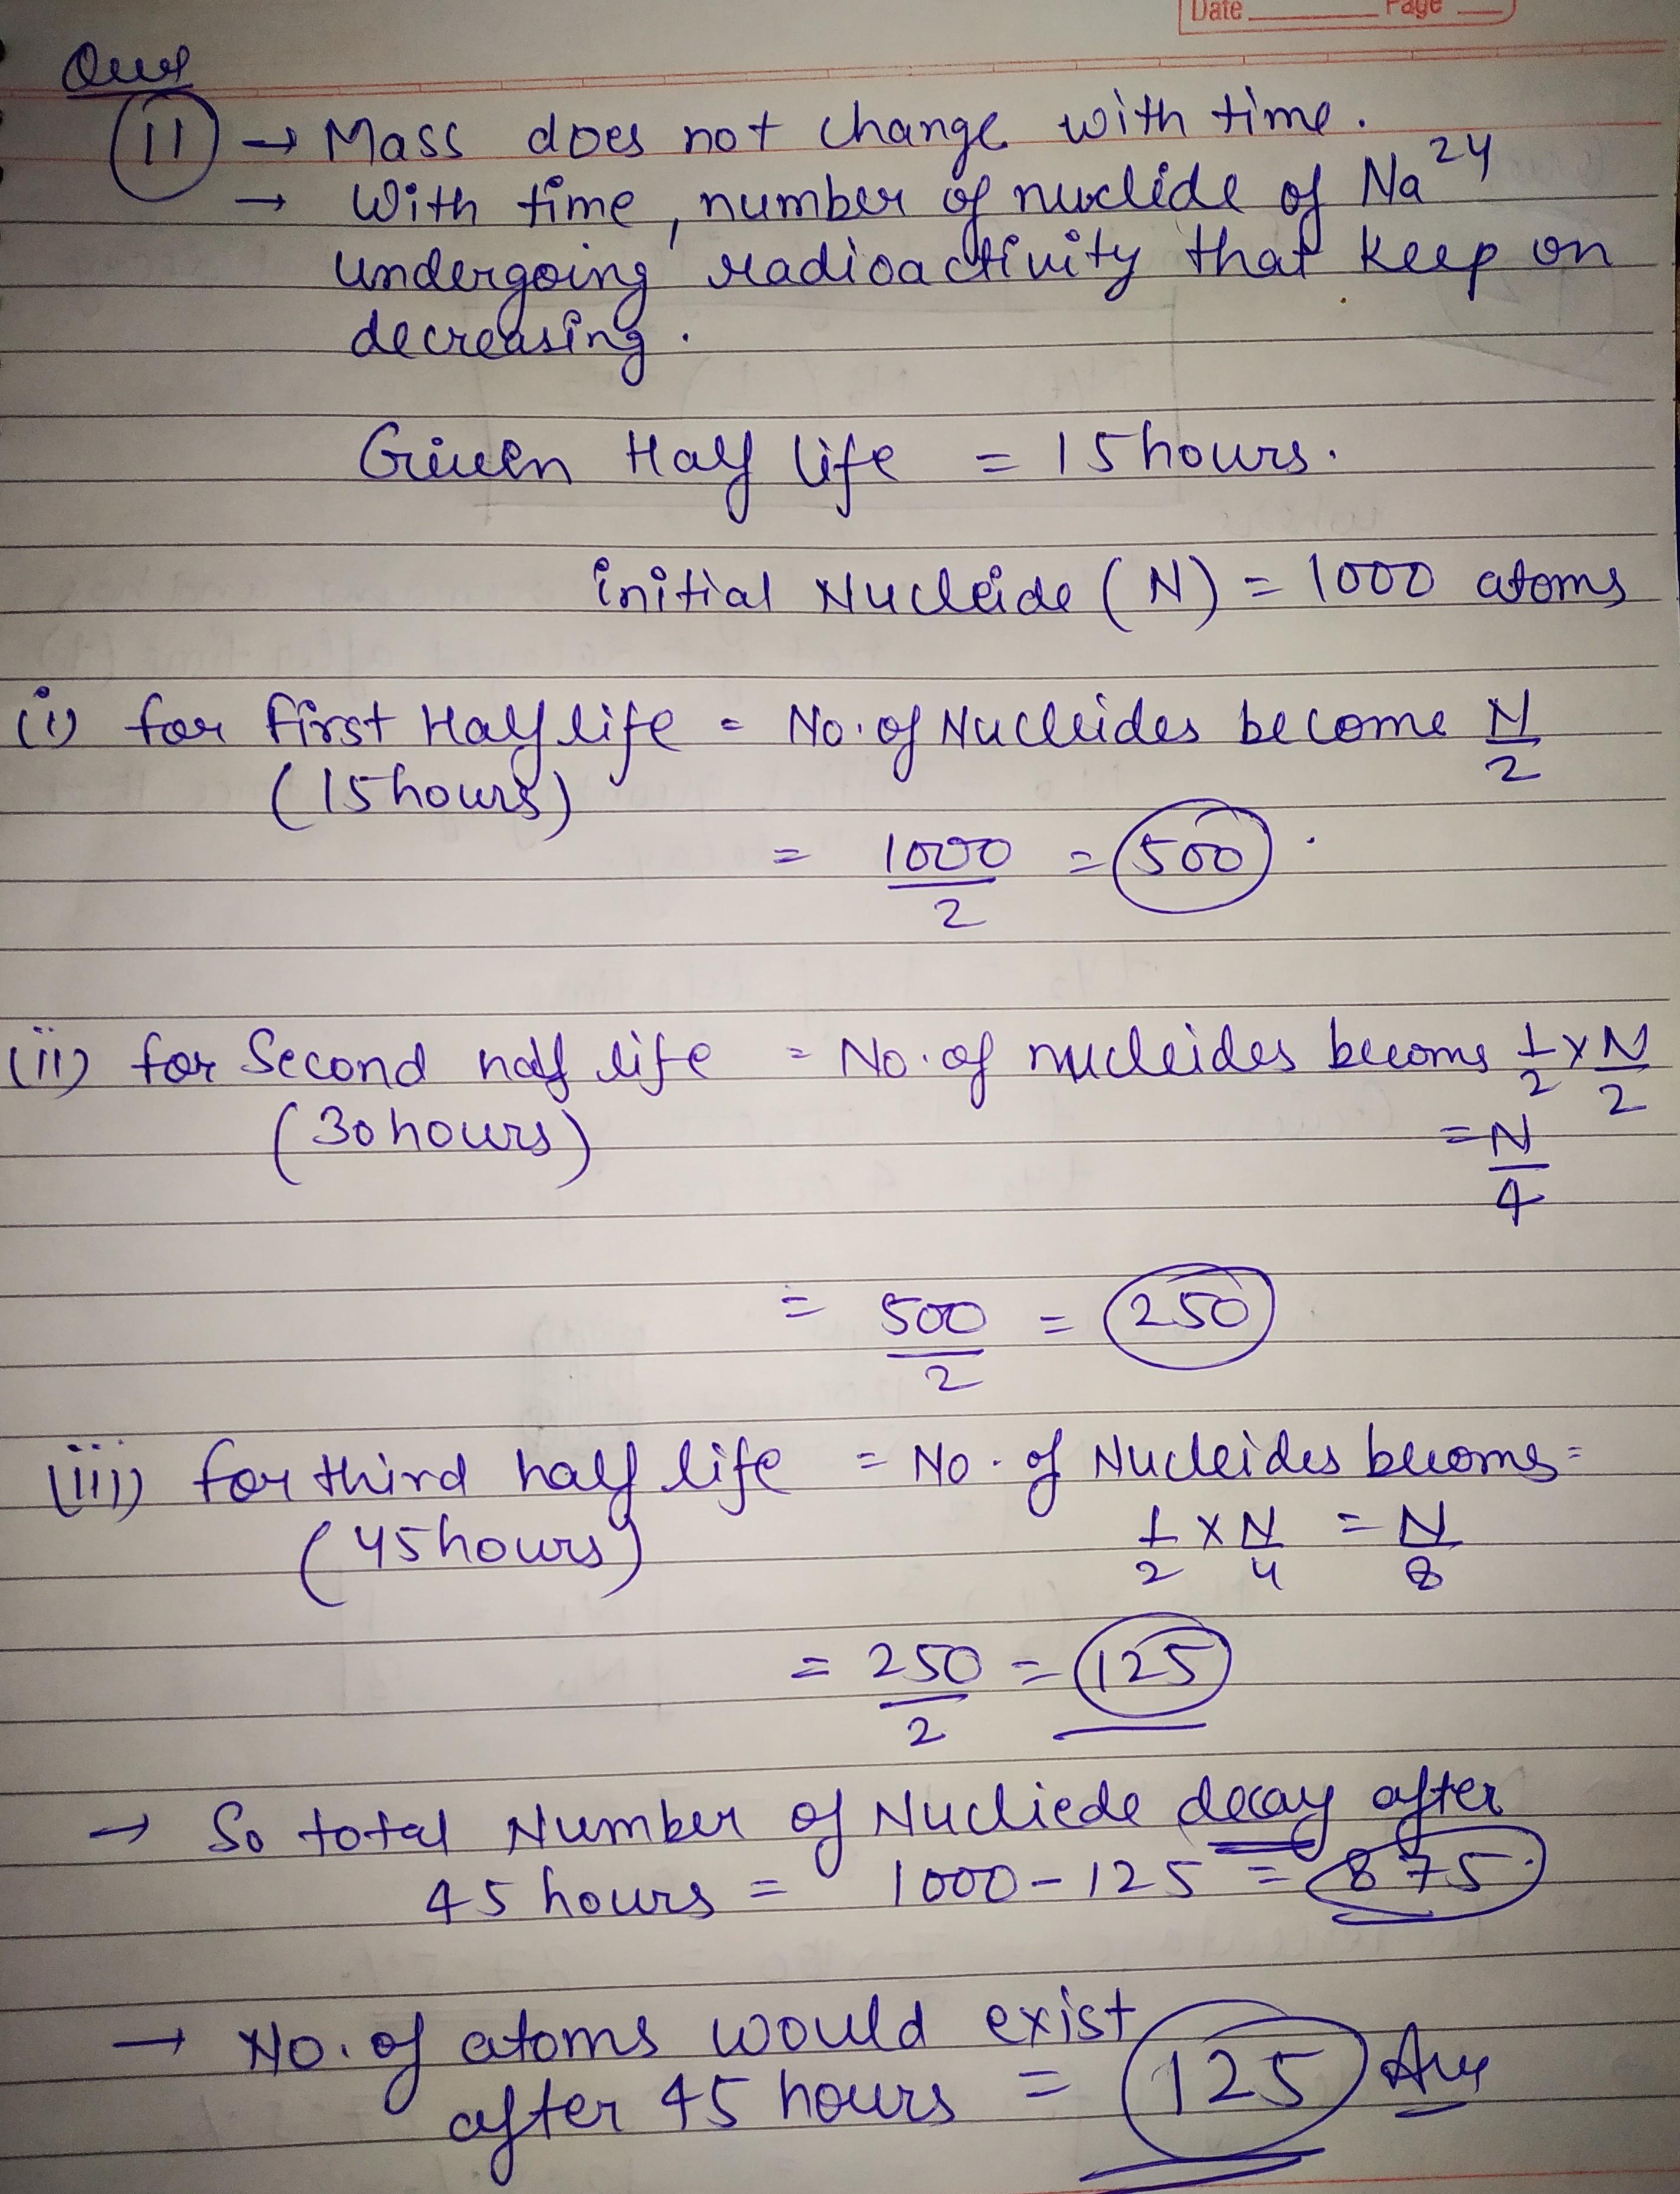 Date Page
Ans
11 → Mass does not change with time.
→ With time, number of nuclide of Na²⁴
undergoing radioactivity that keep on
decreasing.
Given Half life = 15 hours.
initial Nucleide (N) = 1000 atoms
(i) for first Half life = No. of Nucleides become N/2
(15 hours)
= 1000/2 = 500
(ii) for Second half life = No. of nucleides becoms 1/2 × N/2
(30 hours) = N/4
= 500/2 = 250
(iii) for third half life = No. of Nucleides becoms =
(45 hours) 1/2 × N/4 = N/8
= 250/2 = 125
→ So total Number of Nucliede decay after
45 hours = 1000 - 125 = 875.
→ No. of atoms would exist
after 45 hours = 125 Ans